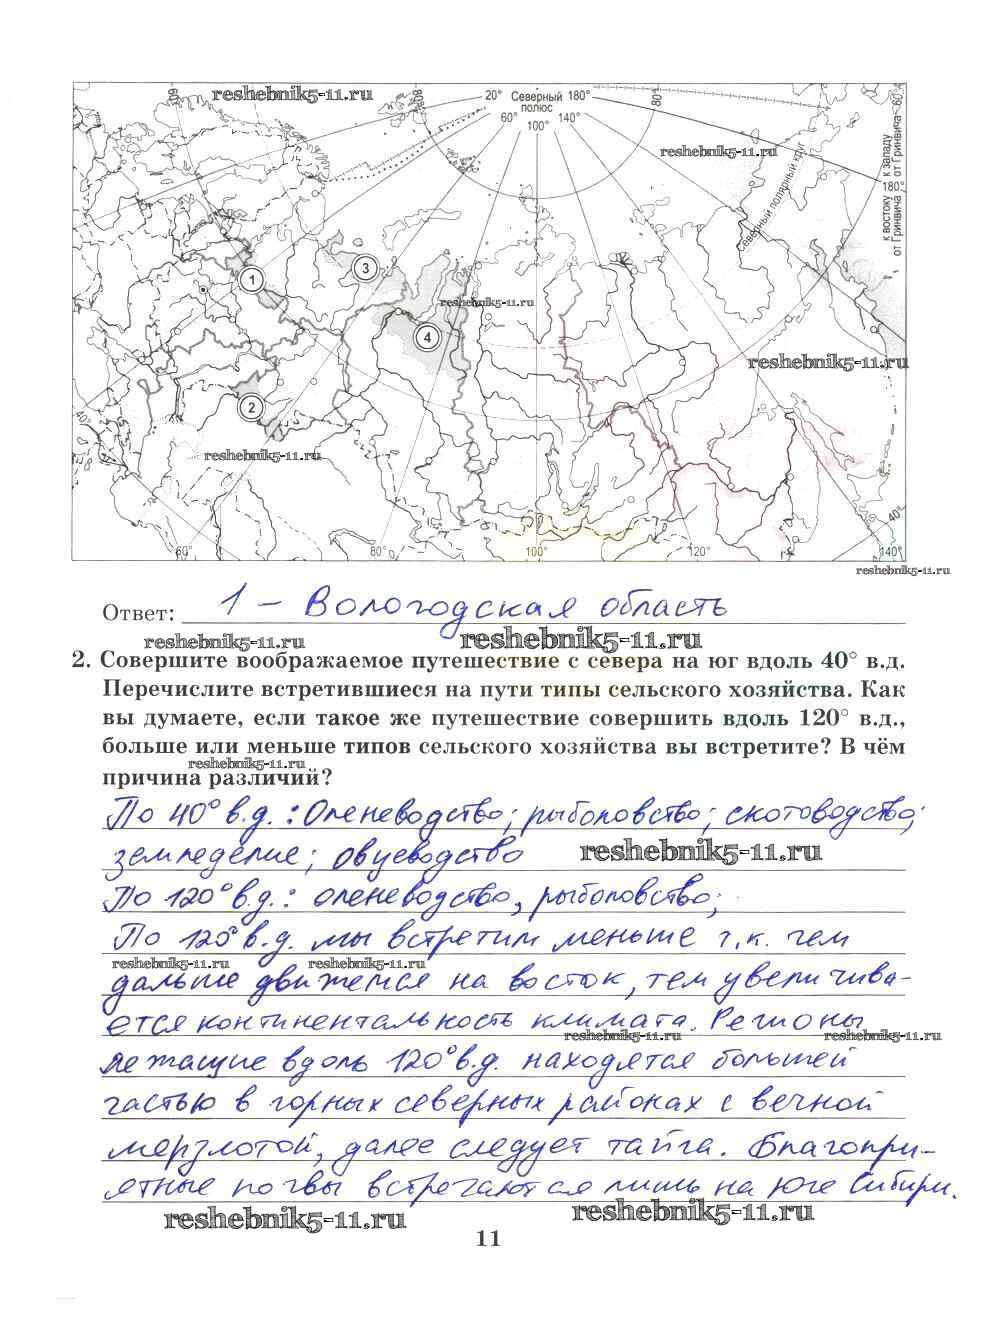 60°
reshebnik5-11.ru
80°
20° Северный 180°
полюс
60° 140°
100°
80°
60°
reshebnik5-11.ru
Северный полярный круг
к западу
от Гринвича
180°
к востоку
от Гринвича
1
3
reshebnik5-11.ru
4
reshebnik5-11.ru
2
40°
reshebnik5-11.ru
40°
60°
80°
100°
120°
140°
reshebnik5-11.ru
Ответ: 1 – Вологодская область
reshebnik5-11.ru reshebnik5-11.ru
2. Совершите воображаемое путешествие с севера на юг вдоль 40° в.д.
Перечислите встретившиеся на пути типы сельского хозяйства. Как
вы думаете, если такое же путешествие совершить вдоль 120° в.д.,
больше или меньше типов сельского хозяйства вы встретите? В чём
reshebnik5-11.ru
причина различий?
По 40° в.д.: Оленеводство; рыболовство; скотоводство;
земледелие; овцеводство
reshebnik5-11.ru
По 120° в.д.: оленеводство, рыболовство;
По 120° в.д. мы встретим меньше т.к. чем
reshebnik5-11.ru reshebnik5-11.ru
дальше движемся на восток, тем увеличива-
ется континентальность климата. Регионы
reshebnik5-11.ru reshebnik5-11.ru
лежащие вдоль 120° в.д. находятся большей
частью в горных северных районах с вечной
мерзлотой, далее следует тайга. Благопри-
ятные почвы встречаются лишь на юге Сибири.
reshebnik5-11.ru reshebnik5-11.ru
11